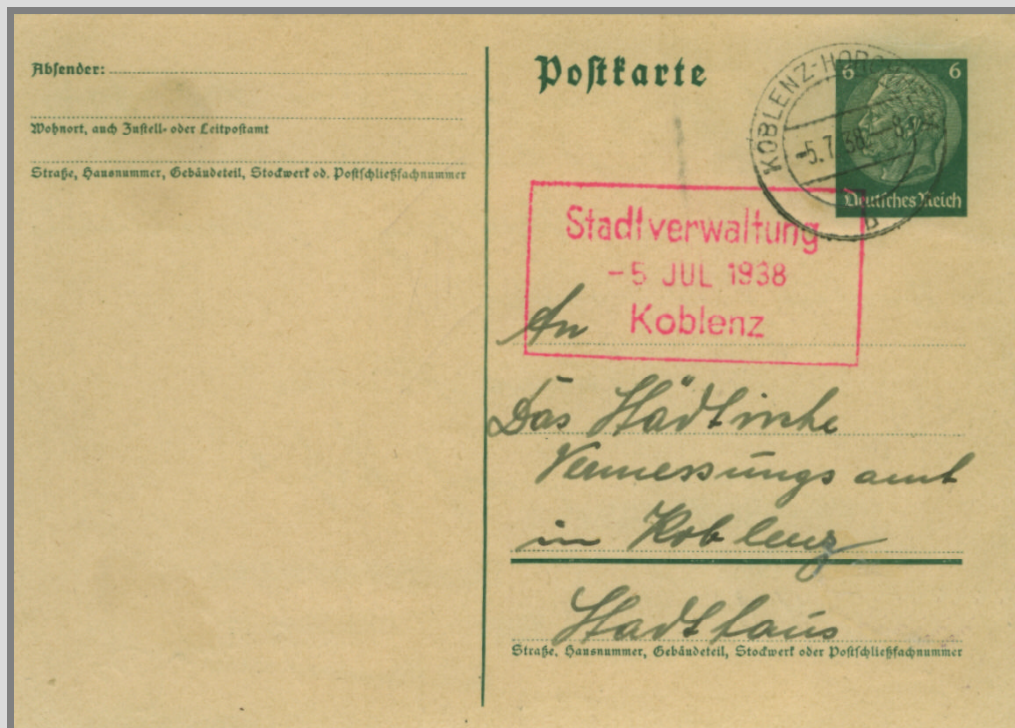 Absender:
Wohnort, auch Zustell- oder Leitpostamt
Straße, Hausnummer, Gebäudeteil, Stockwerk od. Postschließfachnummer
Postkarte
6 6
Deutsches Reich
KOBLENZ-HORCH
-5.7.38
b
Stadtverwaltung
-5 JUL 1938
Koblenz
An
Das Städtische
Vermessungsamt
in Koblenz
Stadthaus
Straße, Hausnummer, Gebäudeteil, Stockwerk oder Postschließfachnummer